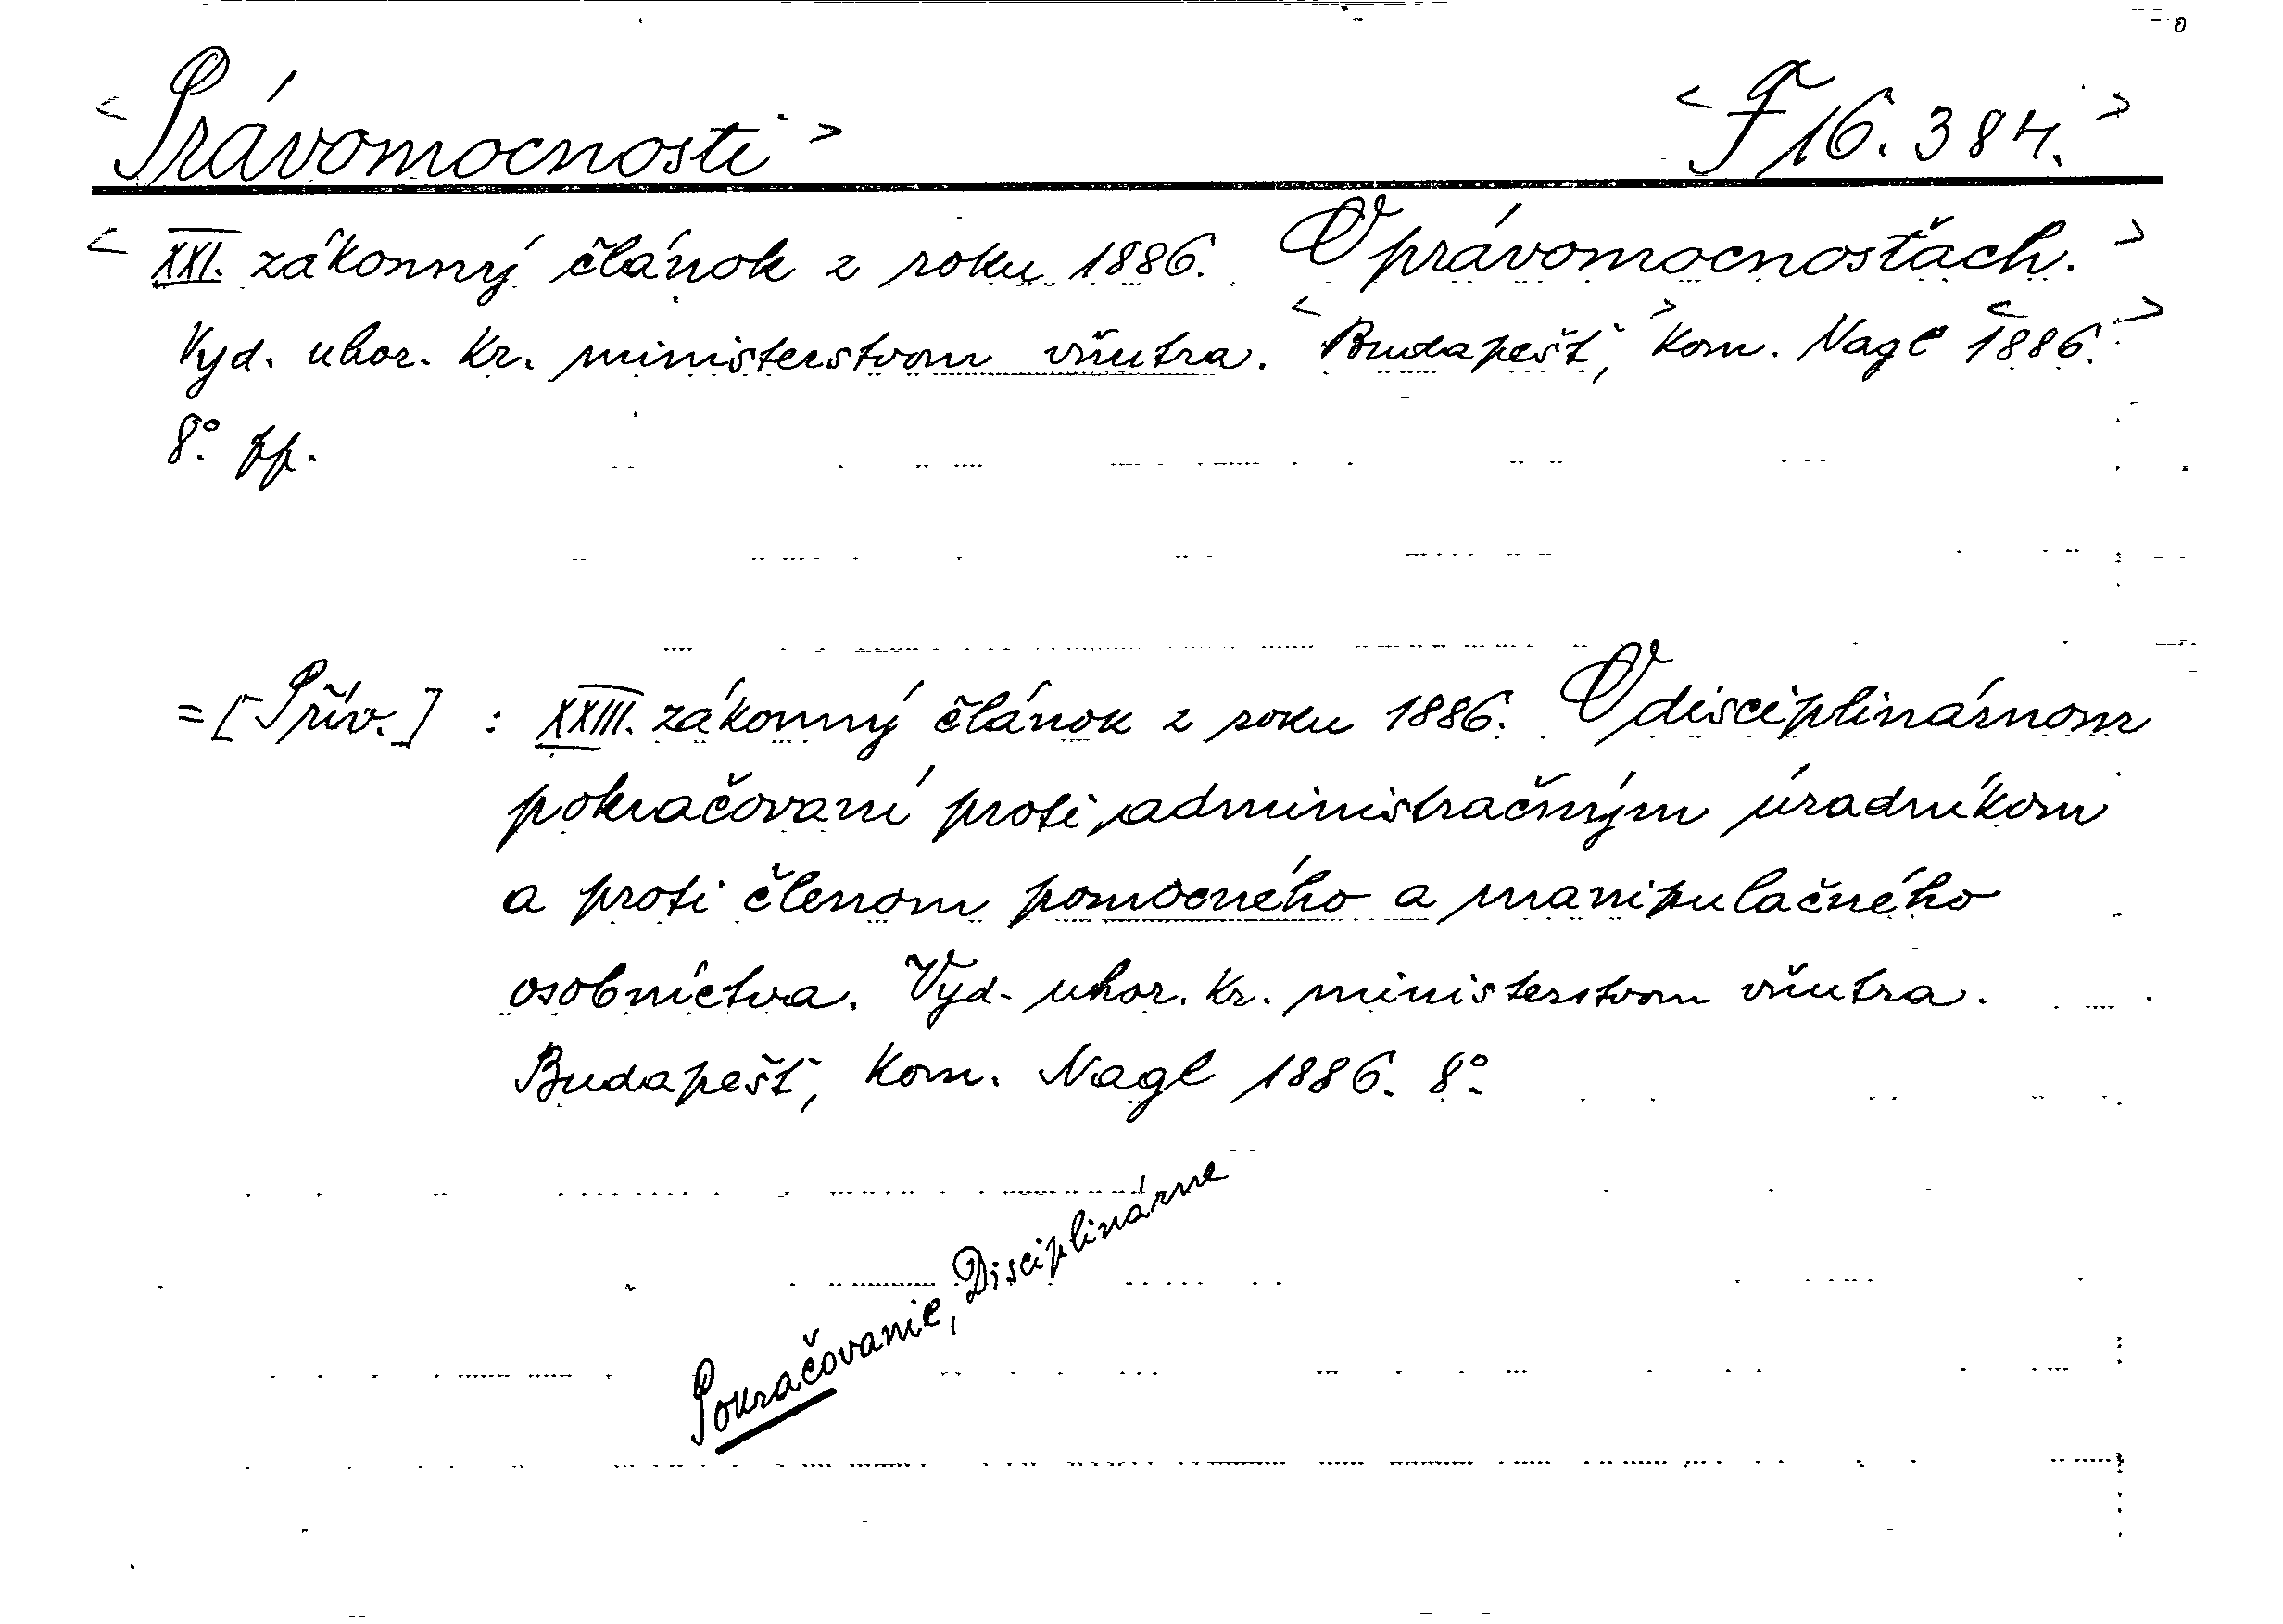 < Právomocnosti > < F 16.384. >
< XXI. zákonný článok z roku 1886. O právomocnosťach. >
Vyd. uhor. kr. ministerstvom vňutra. < Budapešť, > kom. Nagl < 1886. >
8° pp.
= [Přív.] : XXIII. zákonný článok z roku 1886. O disciplinárnom
pokračovaní proti administračným úradníkom
a proti členom pomocného a manipulačného
osobníctva. Vyd. uhor. kr. ministerstvom vňutra.
Budapešť, kom. Nagl 1886. 8°.
Pokračovanie, Disciplinárne